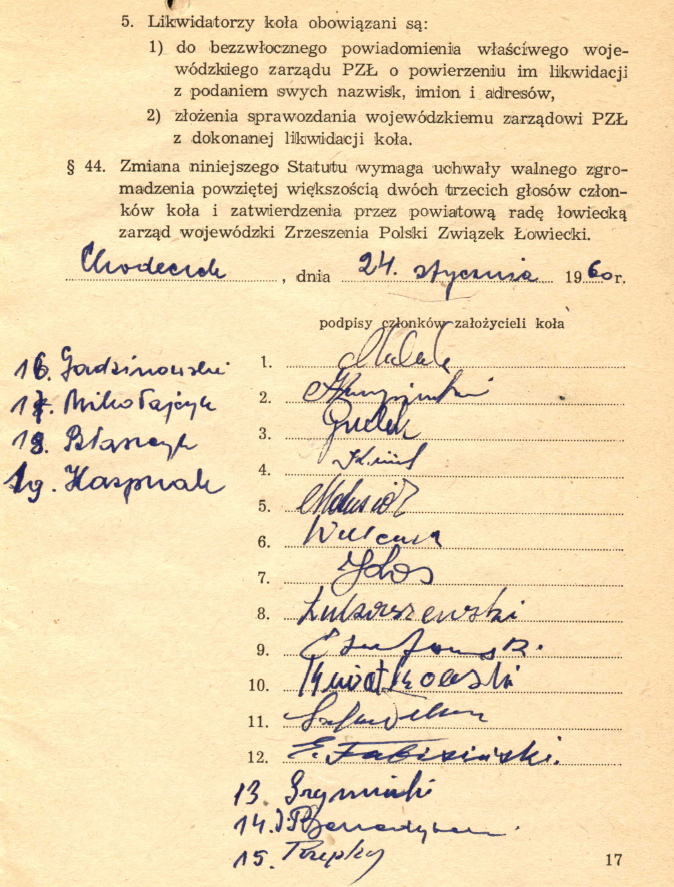 5. Likwidatorzy koła obowiązani są:
1) do bezzwłocznego powiadomienia właściwego woje-
wódzkiego zarządu PZŁ o powierzeniu im likwidacji
z podaniem swych nazwisk, imion i adresów,
2) złożenia sprawozdania wojewódzkiemu zarządowi PZŁ
z dokonanej likwidacji koła.
§ 44. Zmiana niniejszego Statutu wymaga uchwały walnego zgro-
madzenia powziętej większością dwóch trzecich głosów człon-
ków koła i zatwierdzenia przez powiatową radę łowiecką
zarząd wojewódzki Zrzeszenia Polski Związek Łowiecki.
, dnia 24. stycznia 1960 r.
podpisy członków założycieli koła
16. Gadzinowski
17. Mikołajczyk
18. Błaszczyk
19. Kasprzak
1.
2.
3.
4.
5.
6.
7. Kłos
8. Łukaszewski
9.
10. Kwiatkowski
11.
12. E. Fabisiński.
13.
14.
15.
17